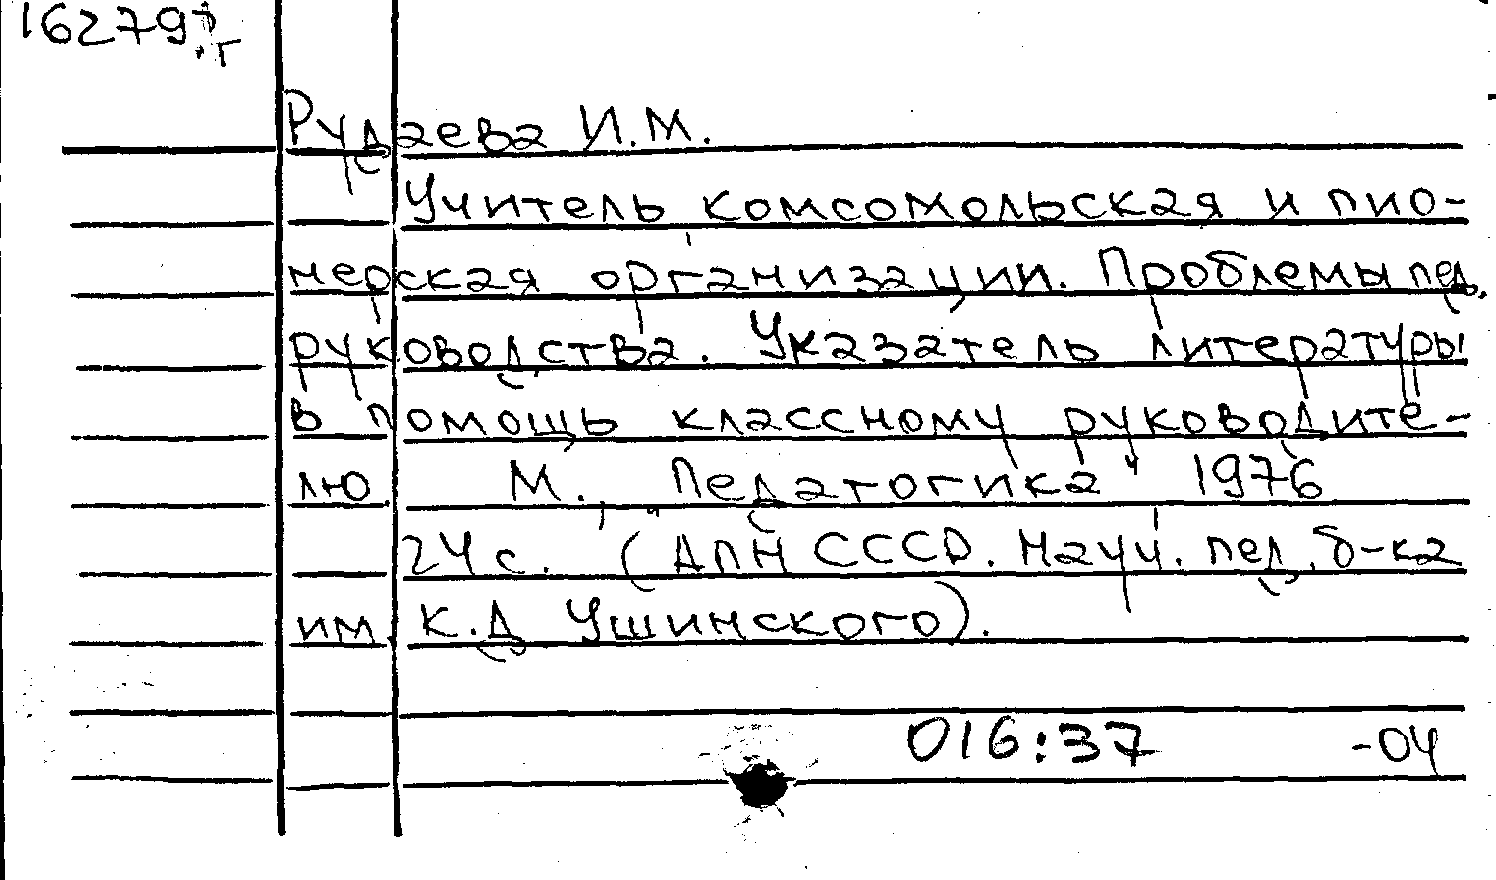 162797
г
Рудаева И.М.
Учитель комсомольская и пио-
нерская организации. Проблемы пед.
руководства. Указатель литературы
в помощь классному руководите-
лю. М., "Педагогика" 1976
24 с. (АПН СССР. Науч. пед. б-ка
им. К.Д Ушинского).
016:37 -04